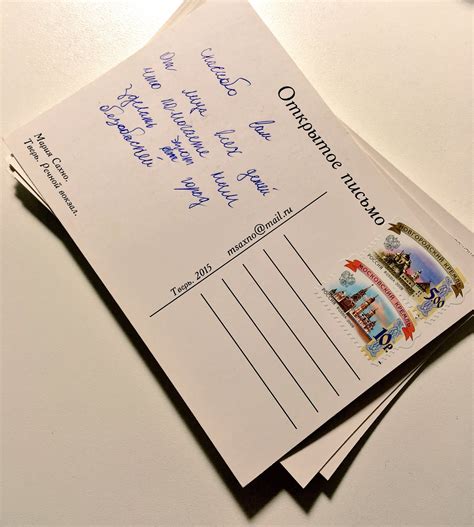 Открытое письмо
спасибо вам
От лица всех детей
что помогаете
зделать этот город
Мария Сахно.
Тверь. Речной вокзал.
Тверь, 2015 msaxno@mail.ru
НОВГОРОДСКИЙ КРЕМЛЬ
РОССИЯ
5.00
МОСКОВСКИЙ КРЕМЛЬ
РОССИЯ
10р.